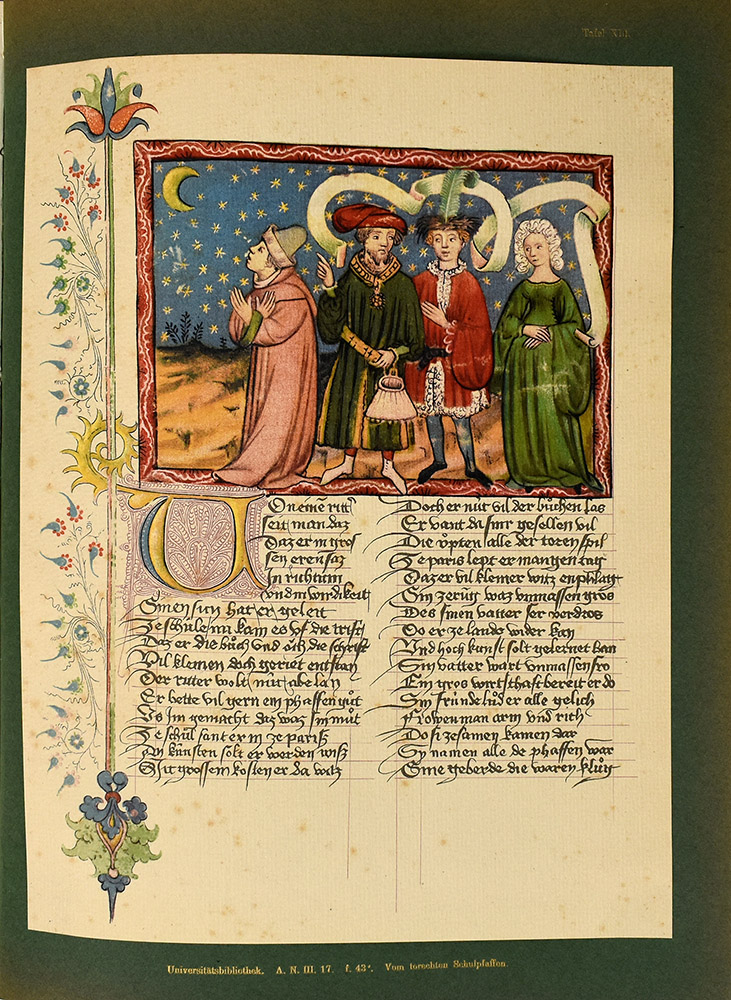 Tafel XIII.
On eine ritt
seit man daz
Daz er in gros
sen eren saz
In richtum
vnd in wirdikeit
Sinen sun hat er geleit
Ze schůle nu kam es vf die trift
Daz er die bůch vnd ůch die schrift
Vil kleinen doch geriet enstan
Der ritter wolt nüt abe lan
Er hette vil gern ein phaffen gůt
Vs im gemacht daz waz sin můt
Ze schůl sant er in ze paris
An künsten solt er werden wis
Mit grossem kosten er da waz
Doch er nüt vil der bůchen las
Er vant da siner gesellen vil
Die ůpten alle der toren spil
Ze paris lept er mangen tag
Daz er vil kleiner witz enphlag
Sin zerüg waz vnmassen gros
Des sinen vatter ser verdros
Do er ze lande wider kan
Vnd hoch kunst solt gelernet han
Sin vatter wart vnmassen fro
Ein gros wirtschaft bereit er do
Sin fründe lůd er alle gelich
Frowen man arm vnd rich
Do si zesamen kamen dar
Sy namen alle de phaffen war
Sine geberde die waren klůg
Universitätsbibliothek. A. N. III. 17. f. 43ª. Vom torechten Schulpfaffen.